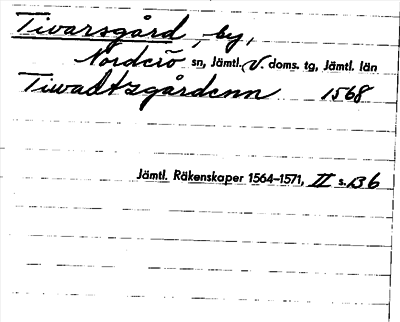 Tivarsgård, by,
Norderö sn, Jämtl. V doms. tg, Jämtl. län
Tiwadtzgårdenn 1568
Jämtl. Räkenskaper 1564–1571, II s. B 6